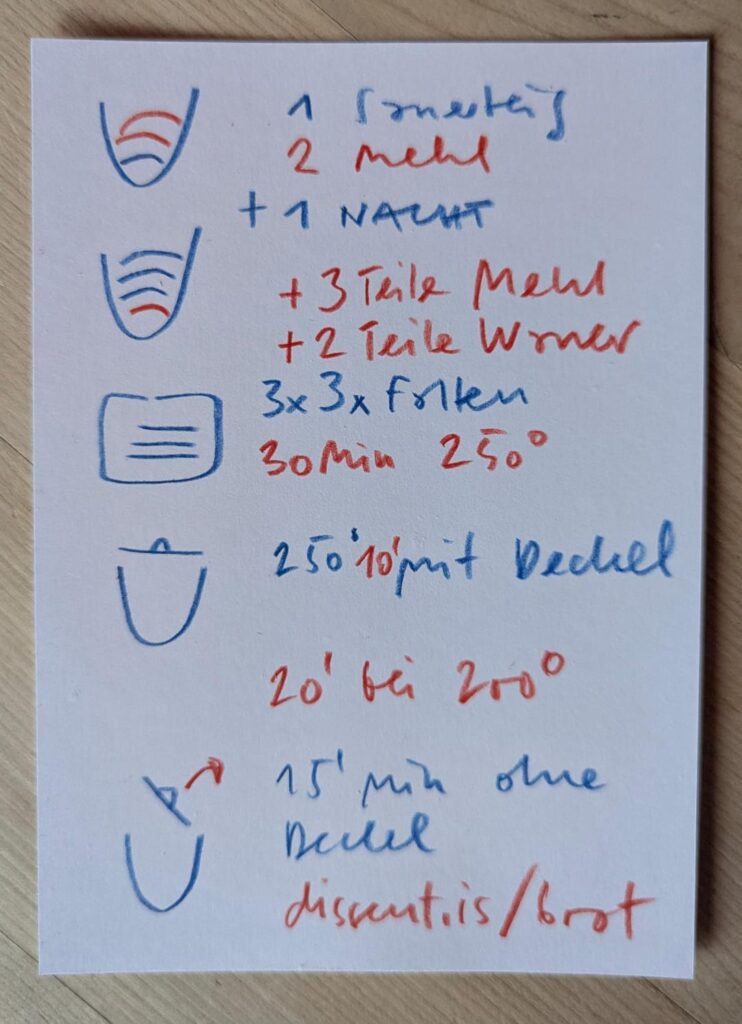 1 Sauerteig
2 Mehl
+ 1 NACHT
+ 3 Teile Mehl
+ 2 Teile Wasser
3x 3x Falten
30 Min 250°
250° 10' mit Deckel
20' bei 200°
15' min ohne
Deckel
dissent.is/brot